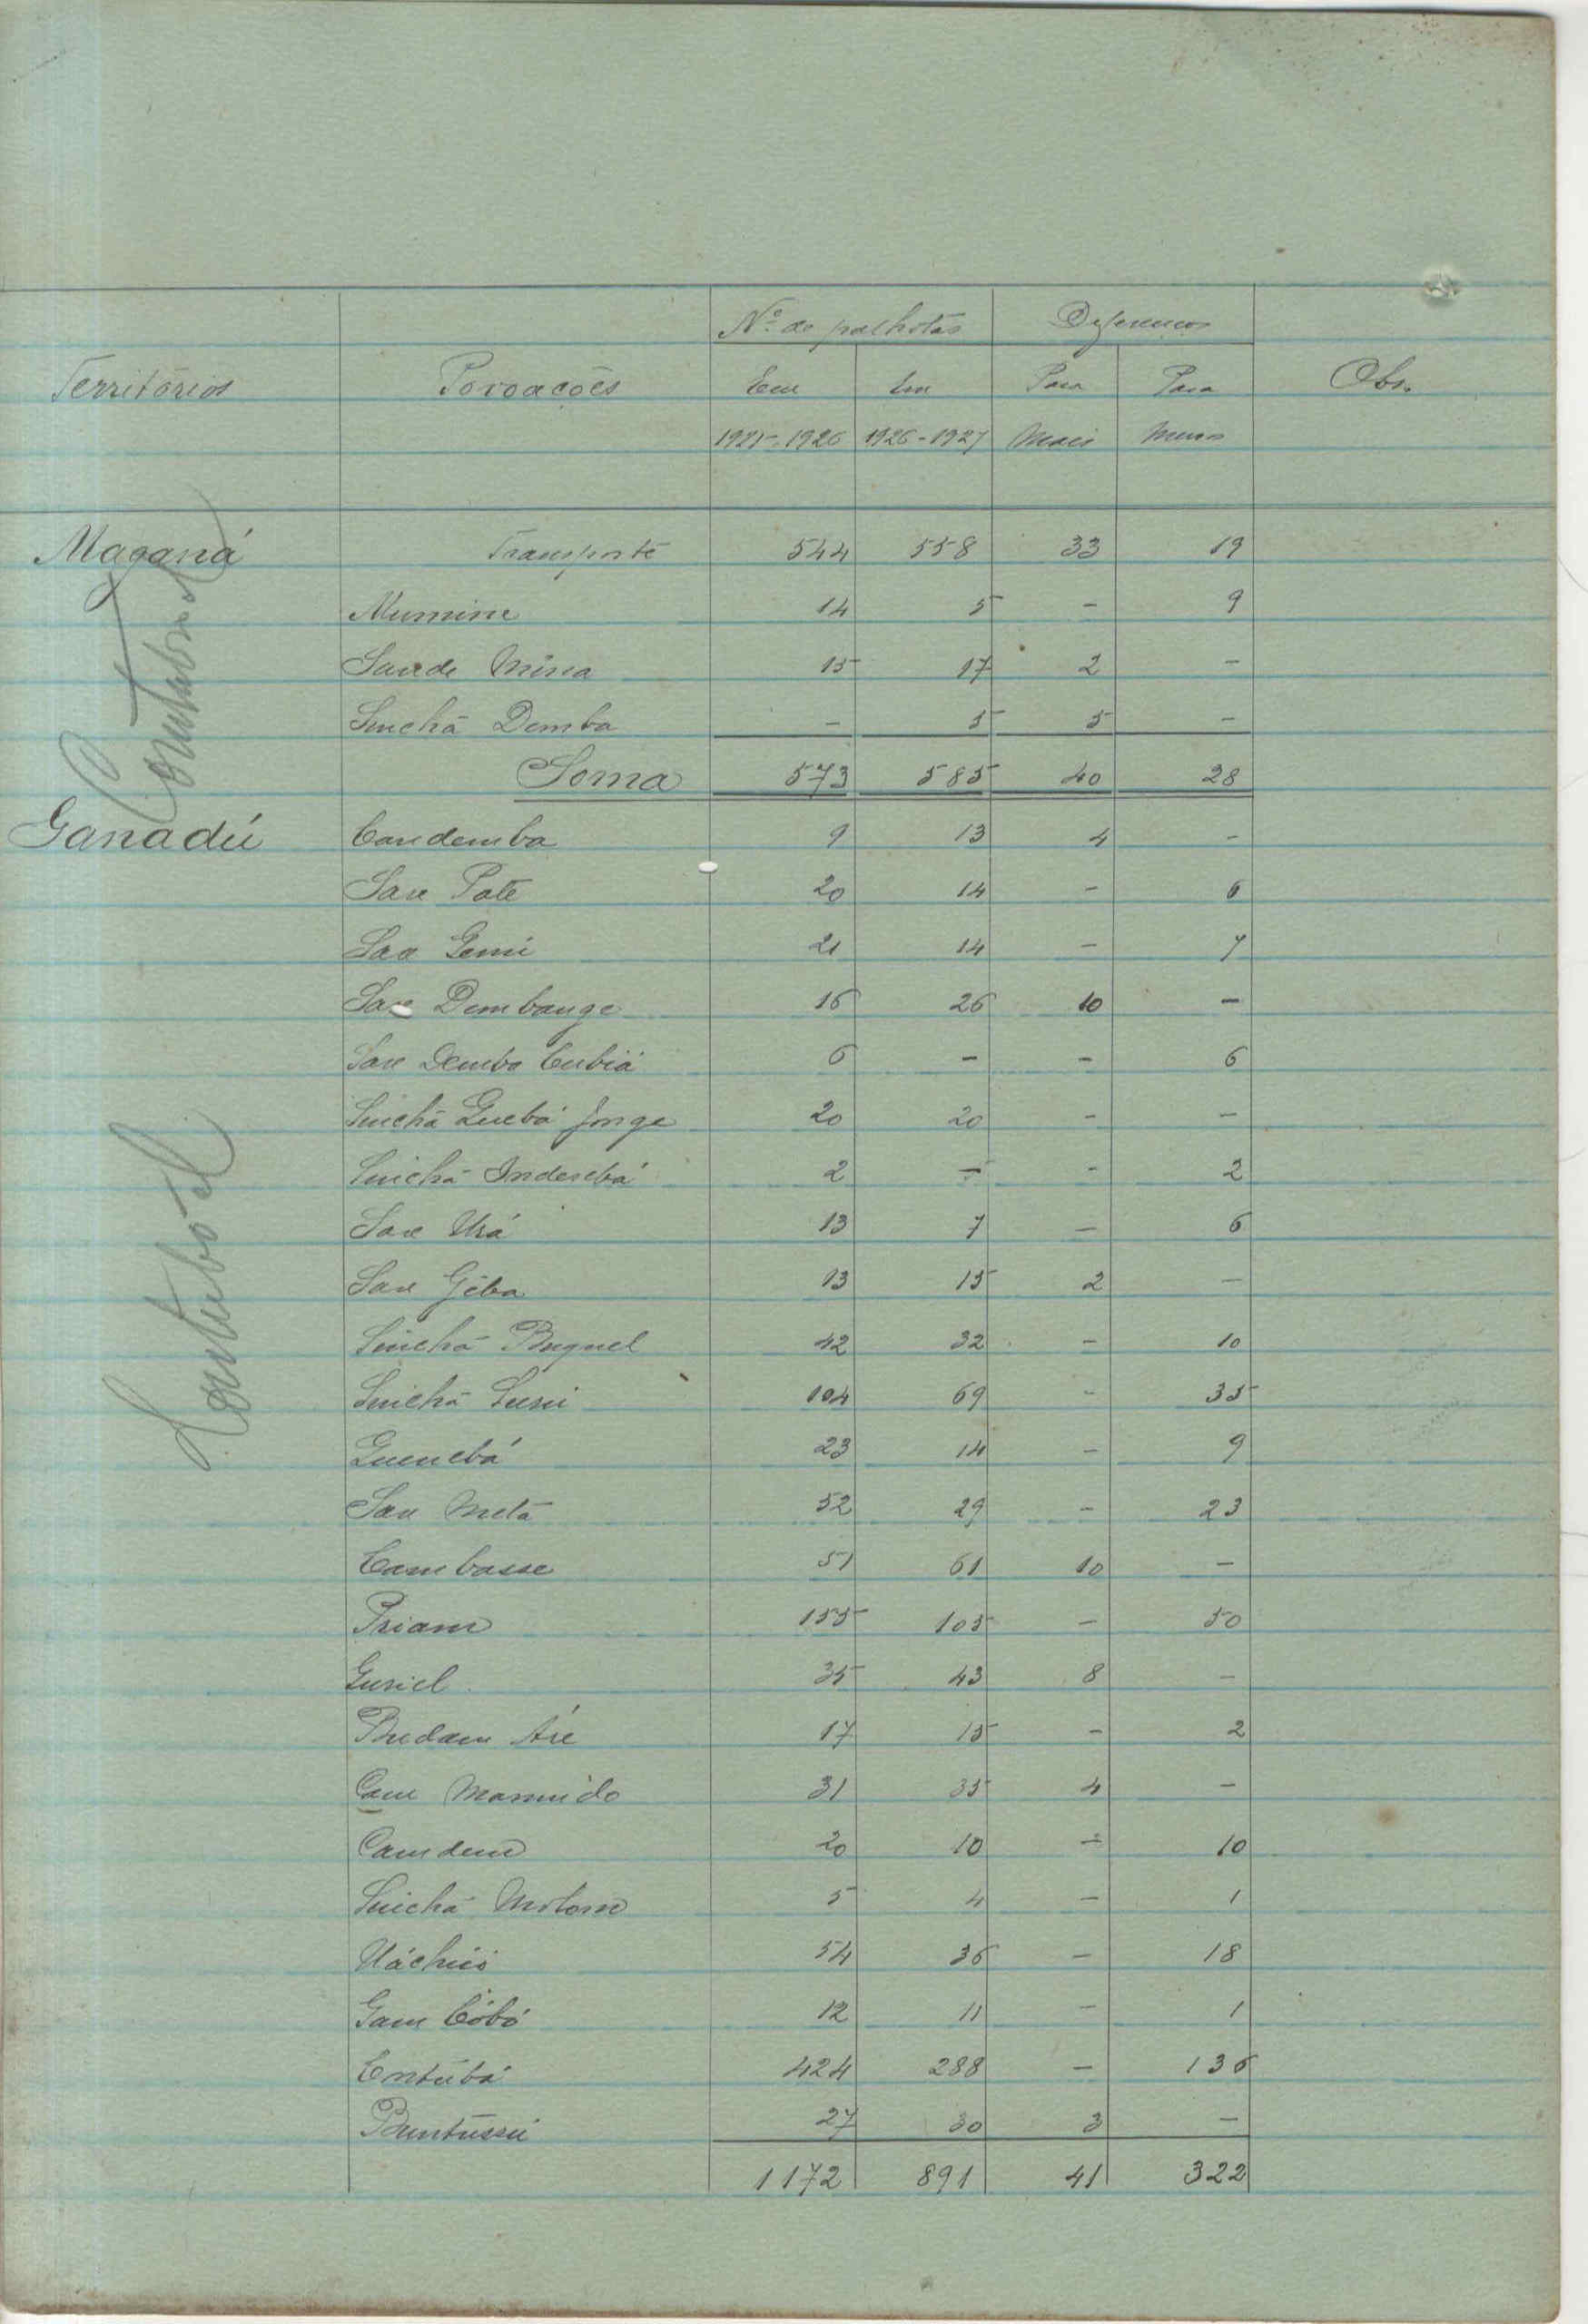 Nº de palhotas Diferenças
Territórios Povoações Em Em Para Para Obs.
1925-1926 1926-1927 Mais Menos
Maganá Transporte 544 558 33 19
Mumine 14 5 - 9
Sare de Mina 15 17 2 -
Sinchã Demba - 5 5 -
Soma 573 585 40 28
Contubo el
Ganadú Candemba 9 13 4 -
Sare Paté 20 14 - 6
Sare 21 14 - 7
Sare Dembange 16 26 10 -
Sare Demba Cubiá 6 - - 6
Sinchã Quebá Jorge 20 20 - -
Sinchã 2 - - 2
Sare Urá 13 7 - 6
Sare Géba 13 15 2 -
Sinchã Buguel 42 32 - 10
Sinchã 104 69 - 35
Guenebá 23 14 - 9
Sare Metá 52 29 - 23
Cambasse 51 61 10 -
Priame 155 105 - 50
Guriel 35 43 8 -
17 15 - 2
Cam Mamudo 31 35 4 -
Camdem 20 10 - 10
Sinchã 5 4 - 1
54 36 - 18
Gam Cóbó 12 11 - 1
Contúbá 424 288 - 136
Buntússú 27 30 3 -
1172 891 41 322
Contubo el